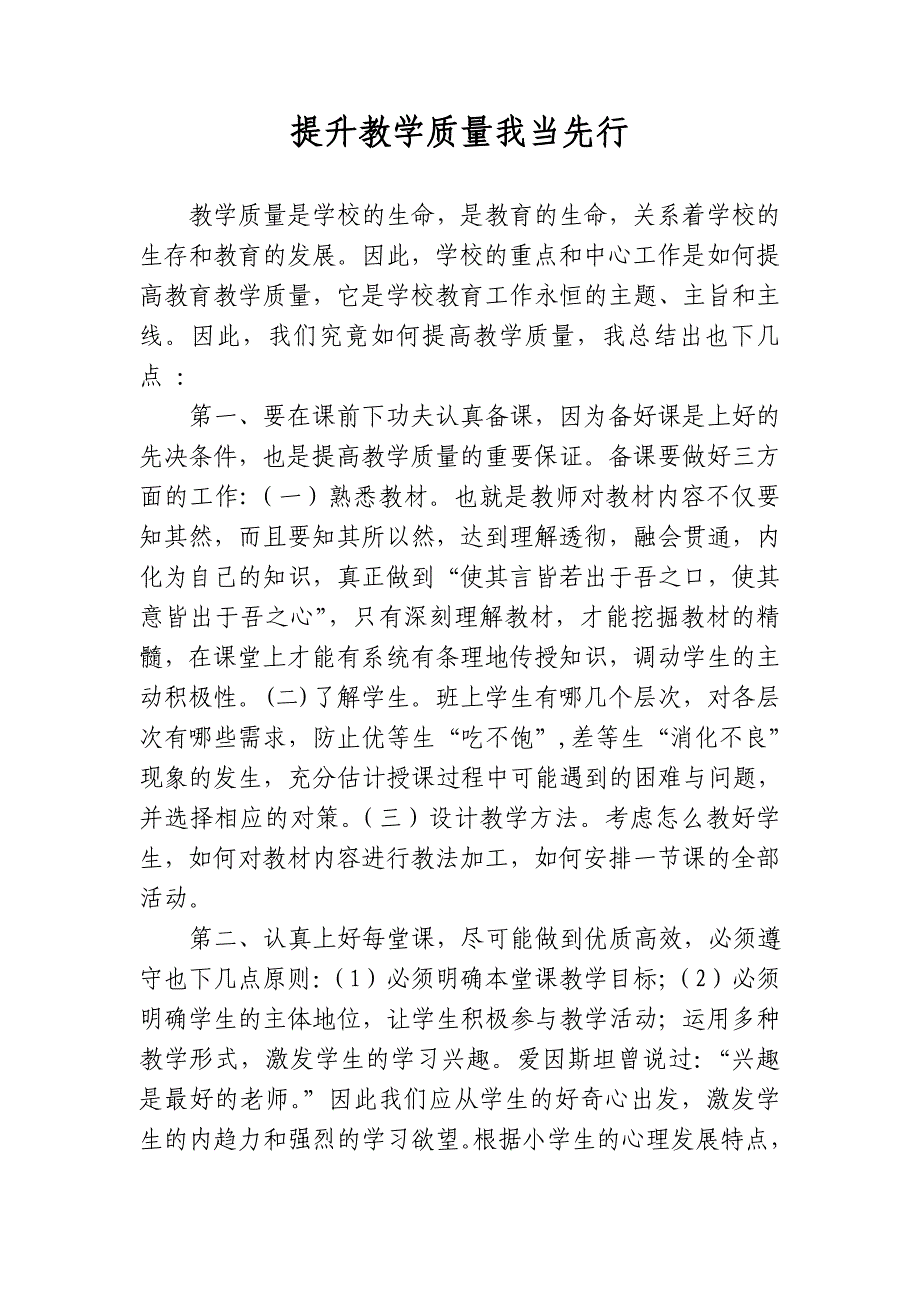 提升教学质量我当先行
教学质量是学校的生命，是教育的生命，关系着学校的
生存和教育的发展。因此，学校的重点和中心工作是如何提
高教育教学质量，它是学校教育工作永恒的主题、主旨和主
线。因此，我们究竟如何提高教学质量，我总结出也下几
点 ：
第一、要在课前下功夫认真备课，因为备好课是上好的
先决条件，也是提高教学质量的重要保证。备课要做好三方
面的工作：（一）熟悉教材。也就是教师对教材内容不仅要
知其然，而且要知其所以然，达到理解透彻，融会贯通，内
化为自己的知识，真正做到“使其言皆若出于吾之口，使其
意皆出于吾之心”，只有深刻理解教材，才能挖掘教材的精
髓，在课堂上才能有系统有条理地传授知识，调动学生的主
动积极性。(二)了解学生。班上学生有哪几个层次，对各层
次有哪些需求，防止优等生“吃不饱”,差等生“消化不良”
现象的发生，充分估计授课过程中可能遇到的困难与问题，
并选择相应的对策。（三）设计教学方法。考虑怎么教好学
生，如何对教材内容进行教法加工，如何安排一节课的全部
活动。
第二、认真上好每堂课，尽可能做到优质高效，必须遵
守也下几点原则：（1）必须明确本堂课教学目标；（2）必须
明确学生的主体地位，让学生积极参与教学活动；运用多种
教学形式，激发学生的学习兴趣。爱因斯坦曾说过：“兴趣
是最好的老师。”因此我们应从学生的好奇心出发，激发学
生的内趋力和强烈的学习欲望。根据小学生的心理发展特点，